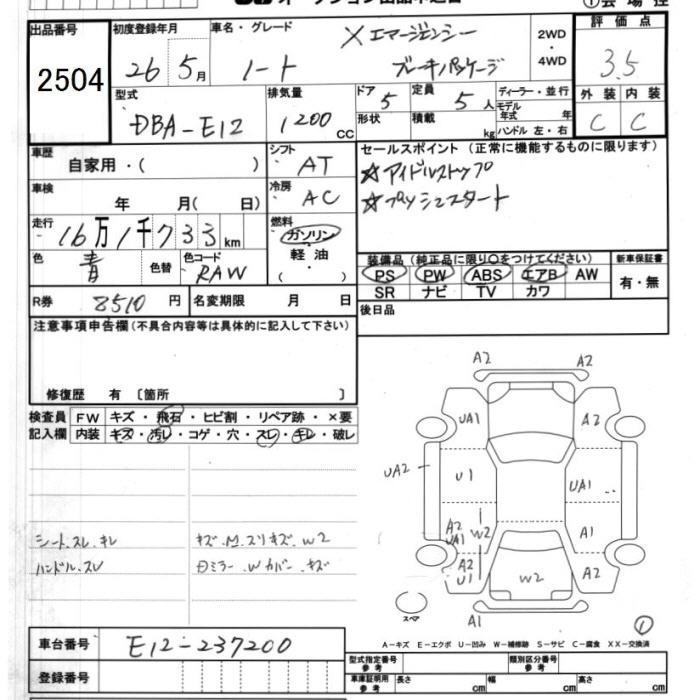 ①会場控
出品番号 2504
初度登録年月 26 5月
車名・グレード ノート X エマージェンシー ブレーキパッケージ
2WD・4WD
評価点 3.5
外装 C 内装 C
型式 DBA-E12
排気量 1200 CC
ドア 5 定員 5人
形状 積載 kg
ディーラー・並行
モデル年式 年
ハンドル 左・右
車歴 自家用・( )
シフト AT
車検 年 月( 日)
冷房 AC
走行 16万1千733km
燃料 ガソリン・軽油・( )
色 青 色替 色コード RAW
R券 8510円 名変期限 月 日
セールスポイント(正常に機能するものに限ります)
☆アイドルストップ
☆プッシュスタート
装備品(純正品に限り○をつけてください) 新車保証書
PS PW ABS エアB AW 有・無
SR ナビ TV カワ
後日品
注意事項申告欄(不具合内容等は具体的に記入して下さい)
修復歴 有 〔箇所 〕
検査員 FW キズ・飛石・ヒビ割・リペア跡・×要
記入欄 内装 キズ・汚レ・コゲ・穴・スレ・キレ・破レ
シート.スレ.キレ
ハンドル.スレ
キズ.M.スリキズ.W2
ミラー.Wカバー.キズ
A2 A2
UA1 A2
UA2 U1 UA1
A2 UA1 W2 A1
A2 U1 W2 A2
スペア A1 ①
A-キズ E-エクボ U-凹み W-補修跡 S-サビ C-腐食 XX-交換済
車台番号 E12-237200
登録番号
型式指定番号 参考 類別区分番号 参考
車庫証明用 参考 長さ cm 幅 cm 高さ cm